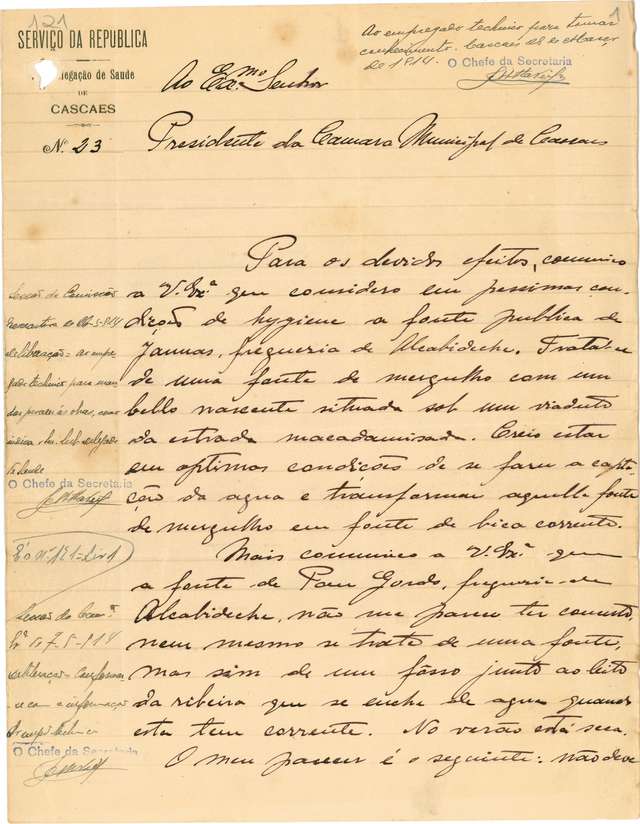 121
1
SERVIÇO DA REPUBLICA
Delegação de Saude
DE
CASCAES
N.º 23
Ao empregado technico para tomar
conhecimento. Cascaes 28 de Março
de 1914.
O Chefe da Secretaria
Ao Ex.mo Senhor
Presidente da Camara Municipal de Cascaes
Para os devidos efeitos, comunico
a V. Ex.ª que considero em pessimas con-
dições de hygiene a fonte publica de
Jannas, freguezia de Alcabideche. Trata-se
de uma fonte de mergulho com um
bello nascente situada sob um viaduto
da estrada macadamisada. Creio estar
em optimas condições de se fazer a capta-
ção da agua e transformar aquella fonte
de mergulho em fonte de bica corrente.
Mais comunico a V. Ex.ª que
a fonte de Pau Gordo, freguezia de
Alcabideche, não me parece ter concerto,
nem mesmo se trata de uma fonte,
mas sim de um fôsso junto ao leito
da ribeira que se enche de agua quando
esta tem corrente. No verão está seca.
O meu parecer é o seguinte: não deve
Sessão da Comissão
Executiva de
deliberação = ao empre-
gado technico para
O Chefe da Secretaria
É o nº 121 =
Sessão da
de 7-5-914
deliberação = Conforme-
se com a informação
do emp. technico
O Chefe da Secretaria